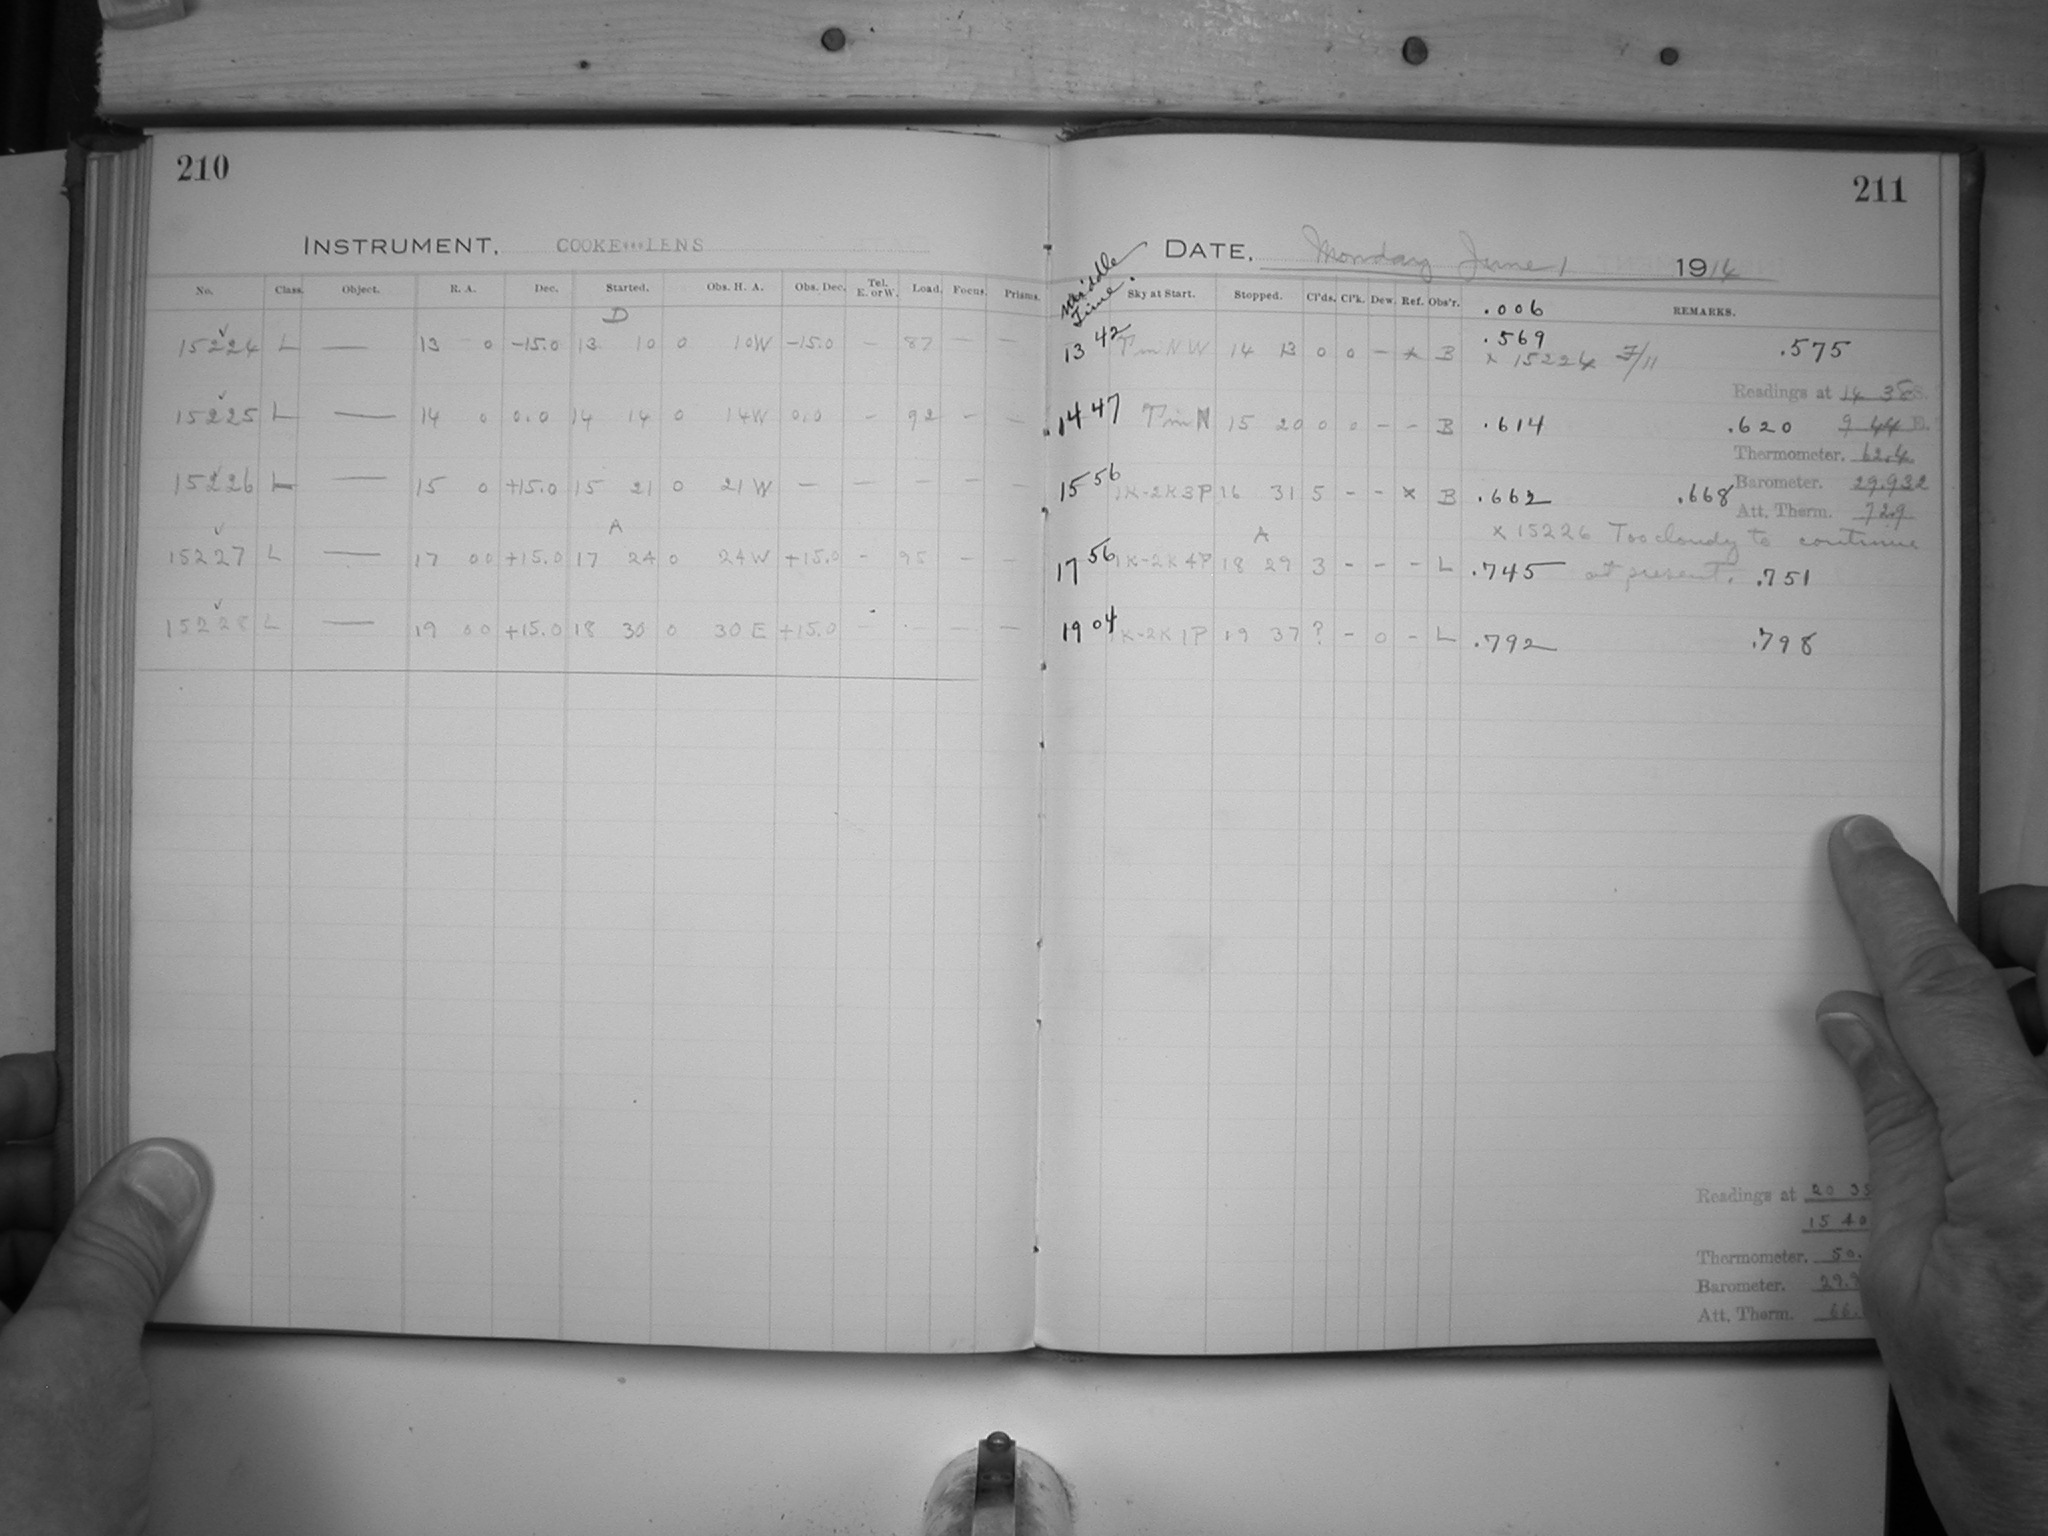 210
INSTRUMENT. COOKE LENS
No. Class. Object. R. A. Dec. Started. Obs. H. A. Obs. Dec. Tel. E. or W. Load. Focus. Prisms.
D
15224 L — 13 0 -15.0 13 10 0 10W -15.0 - 87 - -
15225 L — 14 0 0.0 14 14 0 14W 0.0 - 92 - -
15226 L — 15 0 +15.0 15 21 0 21W — — — — —
A
15227 L — 17 00 +15.0 17 24 0 24W +15.0 - 95 - -
15228 L — 19 00 +15.0 18 30 0 30E +15.0 - - - -
211
DATE. Monday June 1 1914
Middle Time. Sky at Start. Stopped. Cl'ds. Cl'k. Dew. Ref. Obs'r. REMARKS.
.006
.569
13 42 Tm N W 14 13 0 0 - x B x 15224 F/11 .575
Readings at 14 38 S.
14 47 Tm N 15 20 0 0 - - B .614 .620 9 44
Thermometer. 62.4
15 56 1K-2K3P 16 31 5 - - x B .662 .668 Barometer. 29.932
Att. Therm. 72.9
A x 15226 Too cloudy to continue
17 56 1K-2K4P 18 29 3 - - - L .745 at present. .751
19 04 1K-2K1P 19 37 ? - 0 - L .792 .798
Readings at 20 35
15 40
Thermometer. 50.
Barometer. 29.9
Att. Therm. 66.